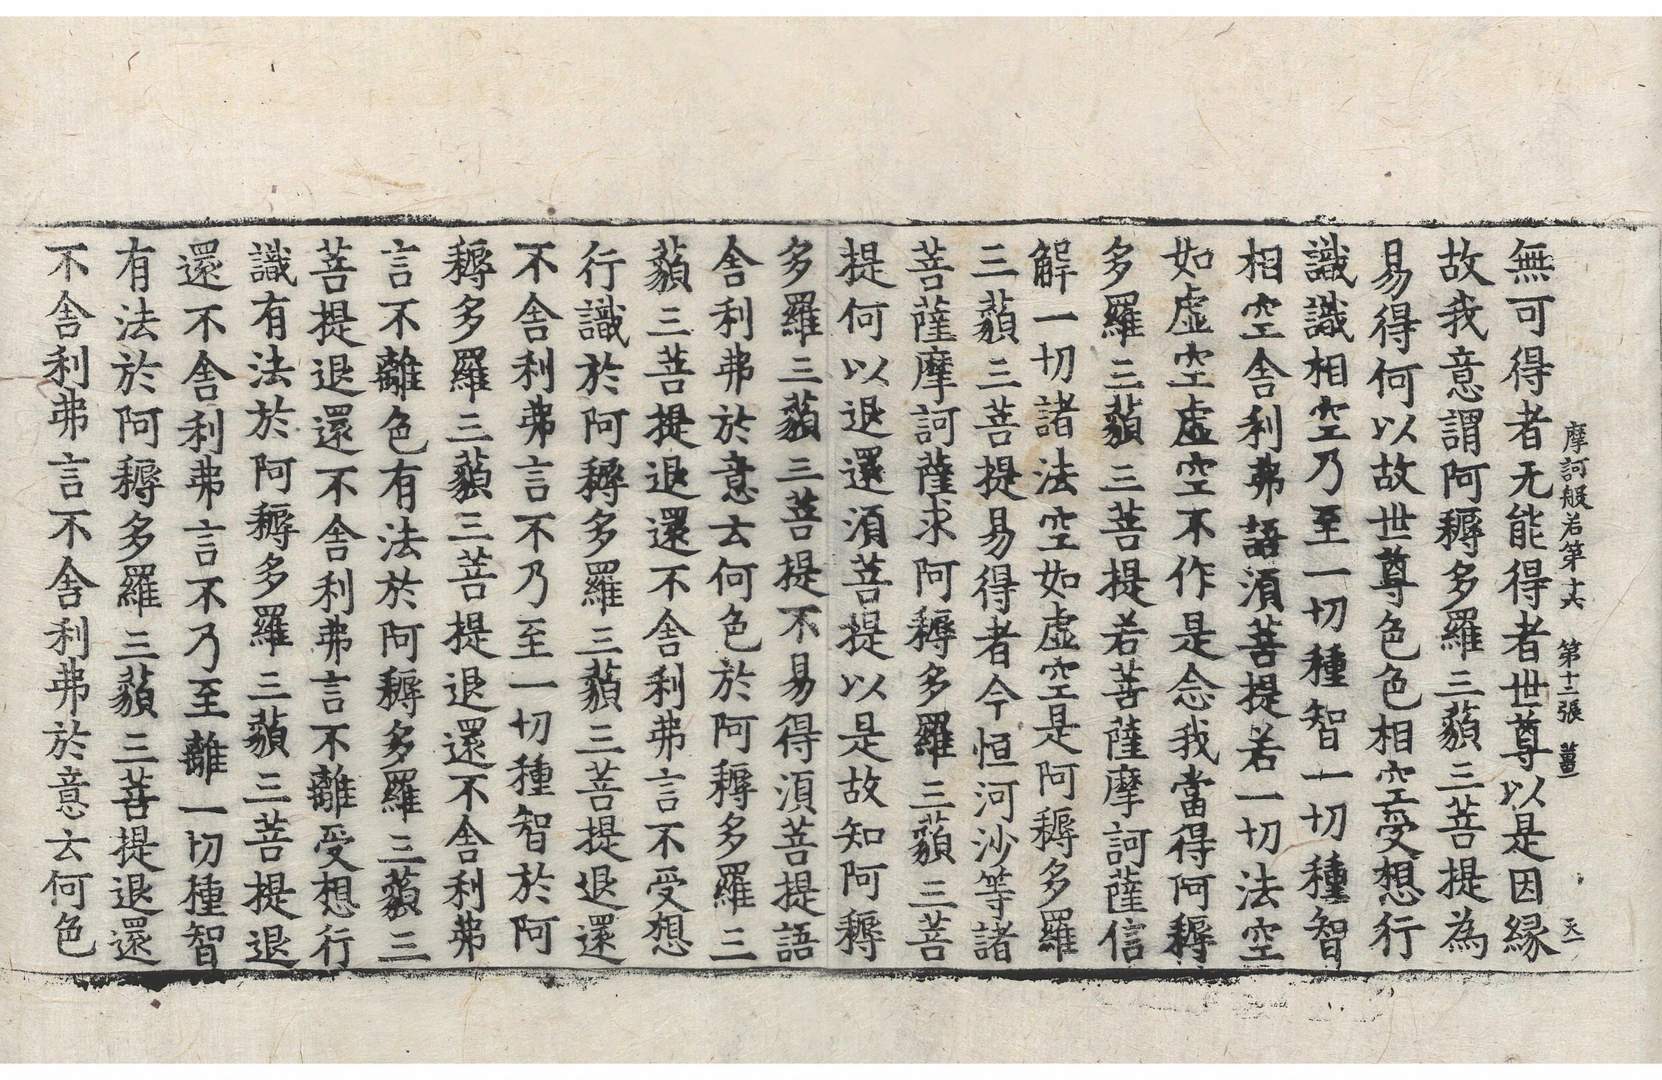 摩訶般若第十六 第十二張 薑
無可得者无能得者世尊以是因緣
故我意謂阿耨多羅三藐三菩提為
易得何以故世尊色色相空受想行
識識相空乃至一切種智一切種智
相空舍利弗語須菩提若一切法空
如虛空虛空不作是念我當得阿耨
多羅三藐三菩提若菩薩摩訶薩信
解一切諸法空如虛空是阿耨多羅
三藐三菩提易得者今恒河沙等諸
菩薩摩訶薩求阿耨多羅三藐三菩
提何以退還須菩提以是故知阿耨
多羅三藐三菩提不易得須菩提語
舍利弗於意云何色於阿耨多羅三
藐三菩提退還不舍利弗言不受想
行識於阿耨多羅三藐三菩提退還
不舍利弗言不乃至一切種智於阿
耨多羅三藐三菩提退還不舍利弗
言不離色有法於阿耨多羅三藐三
菩提退還不舍利弗言不離受想行
識有法於阿耨多羅三藐三菩提退
還不舍利弗言不乃至離一切種智
有法於阿耨多羅三藐三菩提退還
不舍利弗言不舍利弗於意云何色